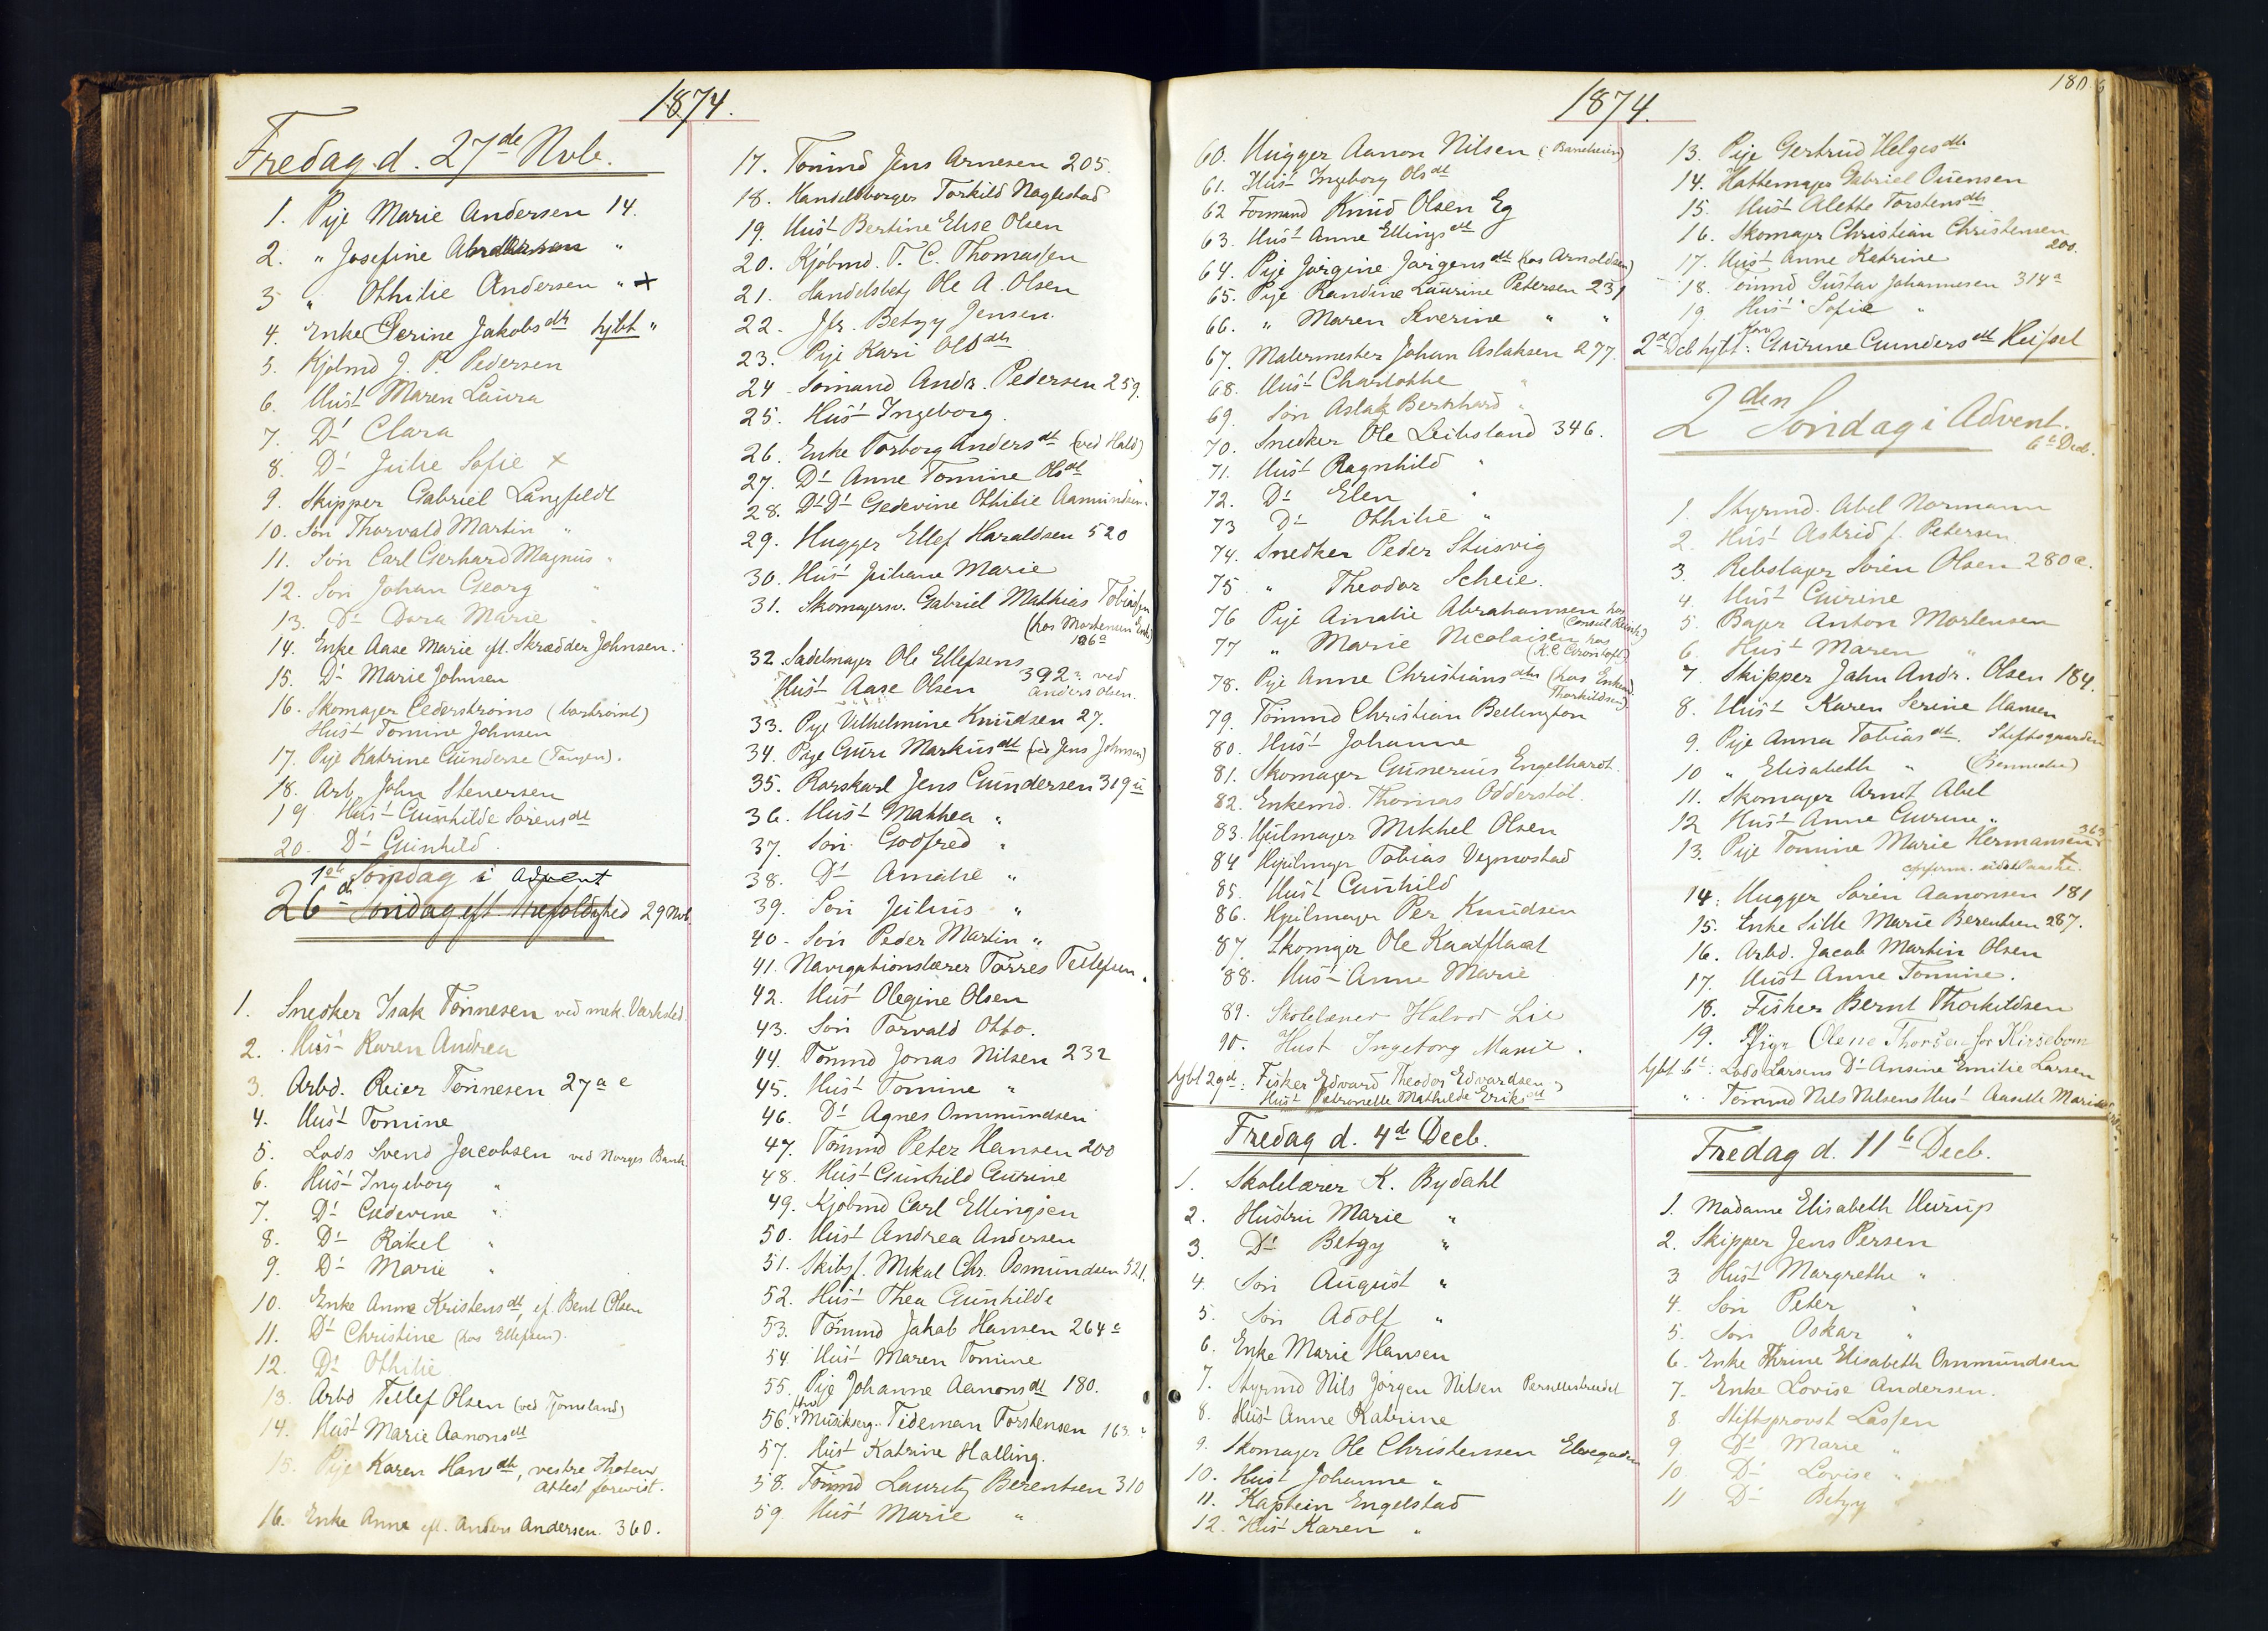 1874.
Fredag d. 27de Nvb.
1. Pije Marie Andersen 14.
2. " Josefine Abrahamsen "
3 " Othilie Andersen " x
4. Enke Serine Jakobsdtr hjbt "
5. Kjøbmd J. P. Pedersen
6. Hust Maren Laura
7. Dr Clara
8. Dr Julie Sofie x
9. Skipper Gabriel Langfeldt
10. Søn Thorvald Martin "
11. Søn Carl Gerhard Magnus "
12. Søn Johan Georg "
13. Dr Dora Marie "
14. Enke Aase Marie eft. Skrædder Johnsen.
15. Dr Marie Johnsen
16. Skomager Cederstrøms (bortreist)
Hust Tomine Johnsen
17. Pije Katrine Gunderse (Tangen).
18. Arb. John Stenersen
19 Hust Gunhilde Sørensdtr
20. Dr Gunhild.
1ste Søndag i Advent
26de Søndag eft. Trefoldighed 29 Nvb.
1. Snedker Isak Tønnesen ved mek. Værksted.
2. Hust Karen Andrea
3. Arbd. Reier Tønnesen 27a e
4. Hust Tomine
5. Lods Svend Jacobsen ved Norges Bank.
6. Hust Ingeborg "
7. Dr Gedevine "
8. Dr Rakel "
9. Dr Marie "
10. Enke Anne Kristensdtr, ef. Bent Olsen
11. Dr Christine (hos Ellefsen).
12. Dr Othilie
13. Arbd Tellef Olsen (ved Tjomsland)
14. Hust Marie Aanonsdtr
15. Pije Karen Hansdtr, vestre Thoten
attest forevist.
16. Enke Anne eft. Anders Andersen. 360.
17. Tømmd Jens Arnesen 205.
18. Handelsborger Torkild Naglestad
19. Hust Bertine Elise Olsen
20. Kjøbmd. T. C. Thomassen
21. Handelsbetj Ole A. Olsen
22. Jfr. Betzy Jensen.
23. Pije Kari Olsdtr
24 Sømand Andr. Pedersen 259.
25. Hust Ingeborg.
26. Enke Torborg Andersdtr (ved Hald)
27. Dr Anne Tomine Olsdtr
28. Dr Dr Gedevine Othilie Aamundsen.
29. Hugger Ellef Haraldsen 520
30. Hust Juliane Marie
31. Skomagersv. Gabriel Mathias Tobiassen
(hos Mortensen Enke)
106a
32. Sadelmager Ole Ellefsens
Hust Aase Olsen 392a ved
Anders Olsen.
33. Pije Vilhelmine Knudsen 27.
34. Pige Guri Markusdtr (ved Jens Johnsen)
35. Rorskarl Jens Gundersen 319u
36. Hust Mathea "
37. Søn Godfred "
38. Dr Amalie "
39. Søn Julius "
40. Søn Peder Martin "
41. Navigationslærer Torres Tellefsen.
42. Hust Olegine Olsen
43. Søn Torvald Otto.
44. Tømmd Jonas Nilsen 232
45. Hust Tomine "
46. Dr Agnes Ommundsen
47. Tømmd Peter Hansen 200
48. Hust Gunhild Gurine
49. Kjøbmd Carl Ellingsen
50. Hust Andrea Andersen
51. Skibsf. Mikal Chr. Osmundsen 521.
52. Hust Thea Gunhilde
53. Tømmd Jakob Hansen 264c
54. Hust Maren Tomine
55. Pije Johanne Aanonsdtr 180.
56. Musikserg. Tideman Torstensen 163.
57. Hust Katrine Halling.
58. Tømmd Lauritz Berentsen 310
59. Hust Marie "
1874.
180
60. Hugger Aanon Nilsen (Baneheien)
61. Hust Ingeborg Olsdtr
62 Formand Knud Olsen Eg
63. Hust Anne Ellingsdtr
64. Pije Jørgine Jørgensdtr (hos Arnoldsen)
65. Pije Randine Laurine Petersen 231
66. " Maren Severine " "
67. Malermester Johan Aslaksen 277.
68. Hust Charlotte "
69. Søn Aslak Bernhard "
70. Snedker Ole Leibsland 346.
71. Hust Ragnhild "
72. Dr Elen "
73 Dr Othilie "
74. Snedker Peder Stusvig
75 " Theodor Scheie.
76 Pije Amalie Abrahamsen hos
(Consul Reinh.)
77 " Marie Nicolaisen hos
78. Pije Anne Christiansdtr (hos Enkem.
Thorkildsen).
79. Tømmd Christian Bellington
80. Hust Johanne
81. Skomager Gunerius Engelhardt.
82. Enkemd. Thomas Odderstøl.
83. Hjulmager Mikkel Olsen
84 Hjulmager Tobias Vegmostad
85. Hust Gunhild
86. Hjulmager Per Knudsen
87. Skomager Ole Kaatflaat
88. Hust Anne Marie
89. Skolelærer Halvor Lie
90. Hust Ingeborg Marie.
hjbt 29de: Fisker Edvard Theodor Edvardsen.
Hust Petronelle Mathilde Eriksdtr
Fredag d. 4de Decb.
1. Skolelærer K. Bydahl
2. Hustru Marie "
3. Dr Betzy "
4. Søn August "
5. Søn Adolf "
6. Enke Marie Hansen
7. Styrmd Nils Jørgen Nilsen
8. Hust Anne Katrine
9. Skomager Ole Christensen Elvegaden
10. Hust Johanne "
11. Kaptein Engelstad
12. Hust Karen "
13. Pije Gertrud Helgesdtr
14. Hattemager Gabriel Ouensen
15. Hust Alette Torstensdtr.
16. Skomager Christian Christensen
200.
17. Hust Anne Katrine
18. Tømmd Gustav Johannesen 314a
19. Hust Sofie "
2de Dcb hjbt: Kone Gurine Gundersdtr Heissel
2den Søndag i Advent.
6te Decb.
1. Styrmd. Abel Normann
2. Hust Astrid f. Petersen.
3. Rebslager Søren Olsen 280c.
4. Hust Gurine
5. Bager Anton Mortensen
6. Hust Maren "
7 Skipper Jahn Andr. Olsen 184.
8. Hust Karen Serine Hansen
9. Pije Anna Tobiasdtr. Stiftsgaarden
10 " Elisabeth " (Benneche)
11. Skomager Arnt Abel
12 Hust Anne Gurine "
13. Pije Tomine Marie Hermansen 363
14. Hugger Søren Aanonsen 181
15. Enke Sille Marie Berentsen 287.
16. Arbd. Jacob Martin Olsen
17. Hust Anne Tomine.
18. Fisker Bernt Thorkildsen
19. Pige Olene Thorsen for Kirsebom
hjbt 6te: Lods Larsens Dr Ansine Emilie Larsen
" Tømmd Nils Nilsens Hust Aaselle Marie
Fredag d. 11te Decb.
1. Madame Elisabeth Hurup
2. Skipper Jens Persen
3 Hust Margrethe "
4. Søn Peter "
5. Søn Oskar "
6. Enke Trine Elisabeth Ommundsen
7. Enke Lovise Andersen.
8. Stiftsprovst Lassen
9. Dr Marie "
10. Dr Lovise "
11 Dr Betzy